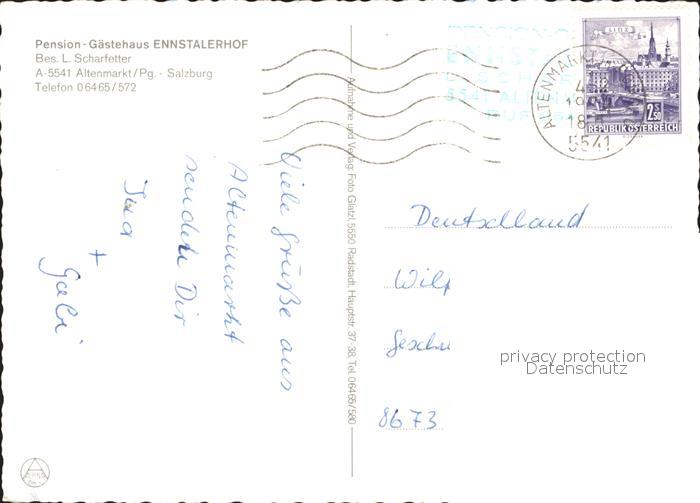 Pension - Gästehaus ENNSTALERHOF
Bes. L. Scharfetter
A-5541 Altenmarkt/Pg. - Salzburg
Telefon 06465/572
Viele Grüße aus
Altenmarkt
senden Dir
Ina
+
Gabi
Aufnahme und Verlag: Foto Glatzl, 5550 Radstadt, Hauptstr. 37-38, Tel. 06465/580
5541 ALTENM
ALTENMARKT
18
5541
LINZ
2.50
REPUBLIK ÖSTERREICH
Deutschland
Wilf
Geschw
8673
privacy protection
Datenschutz